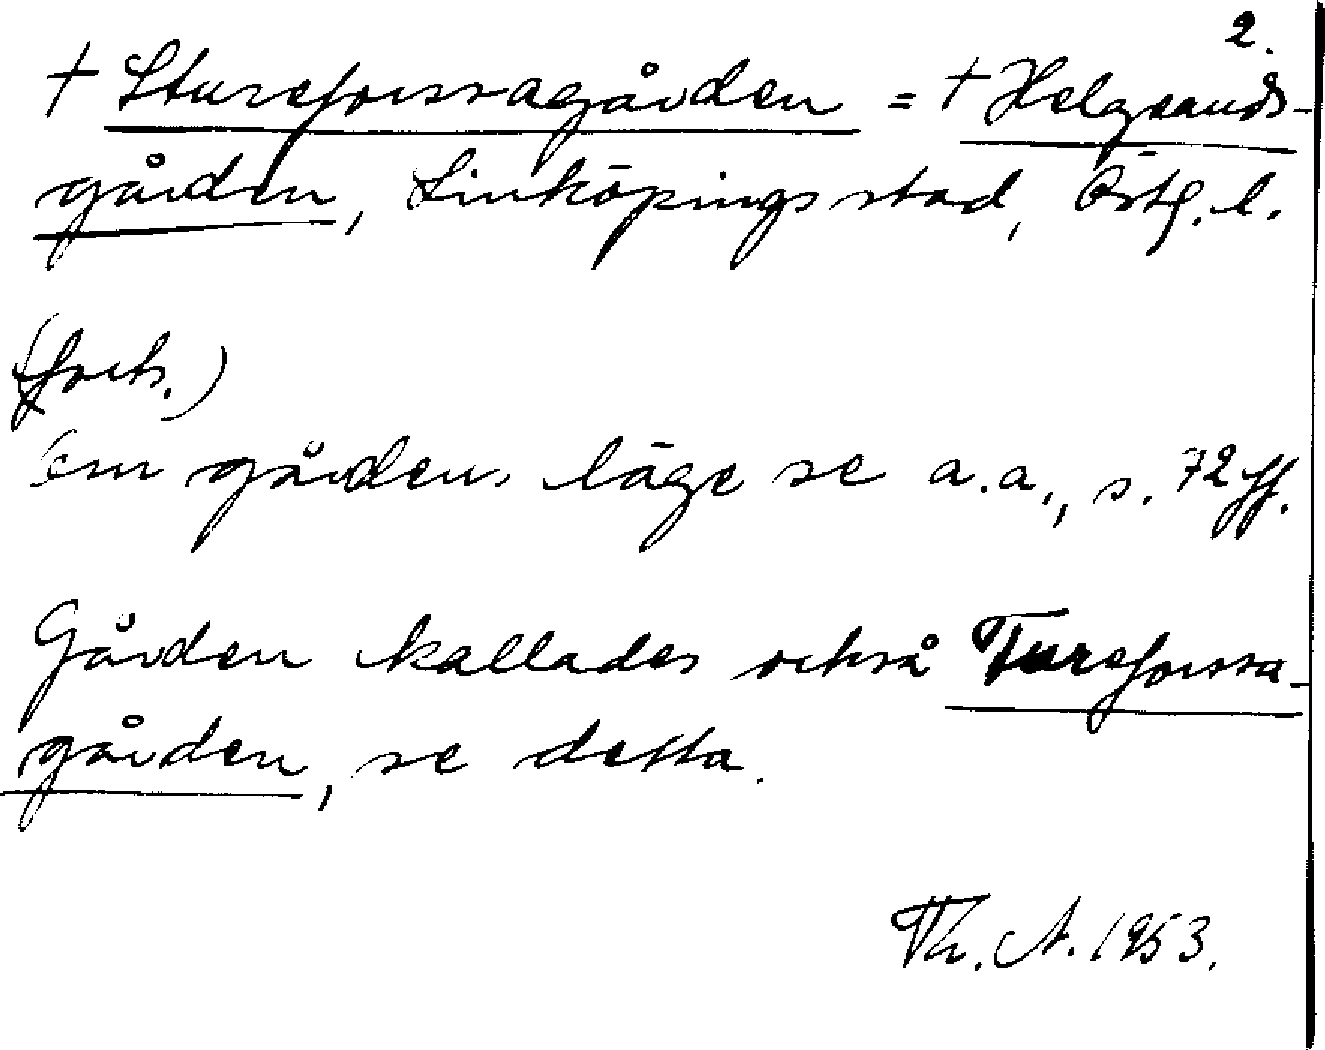 2.
† Stureforssagården = † Helgeands-
gården, Linköpings stad, Östg. l.
(forts.)
Om gårdens läge se a.a., s. 72 ff.
Gården kallades också Tureforssa-
gården, se detta.
Th. A. 1953.